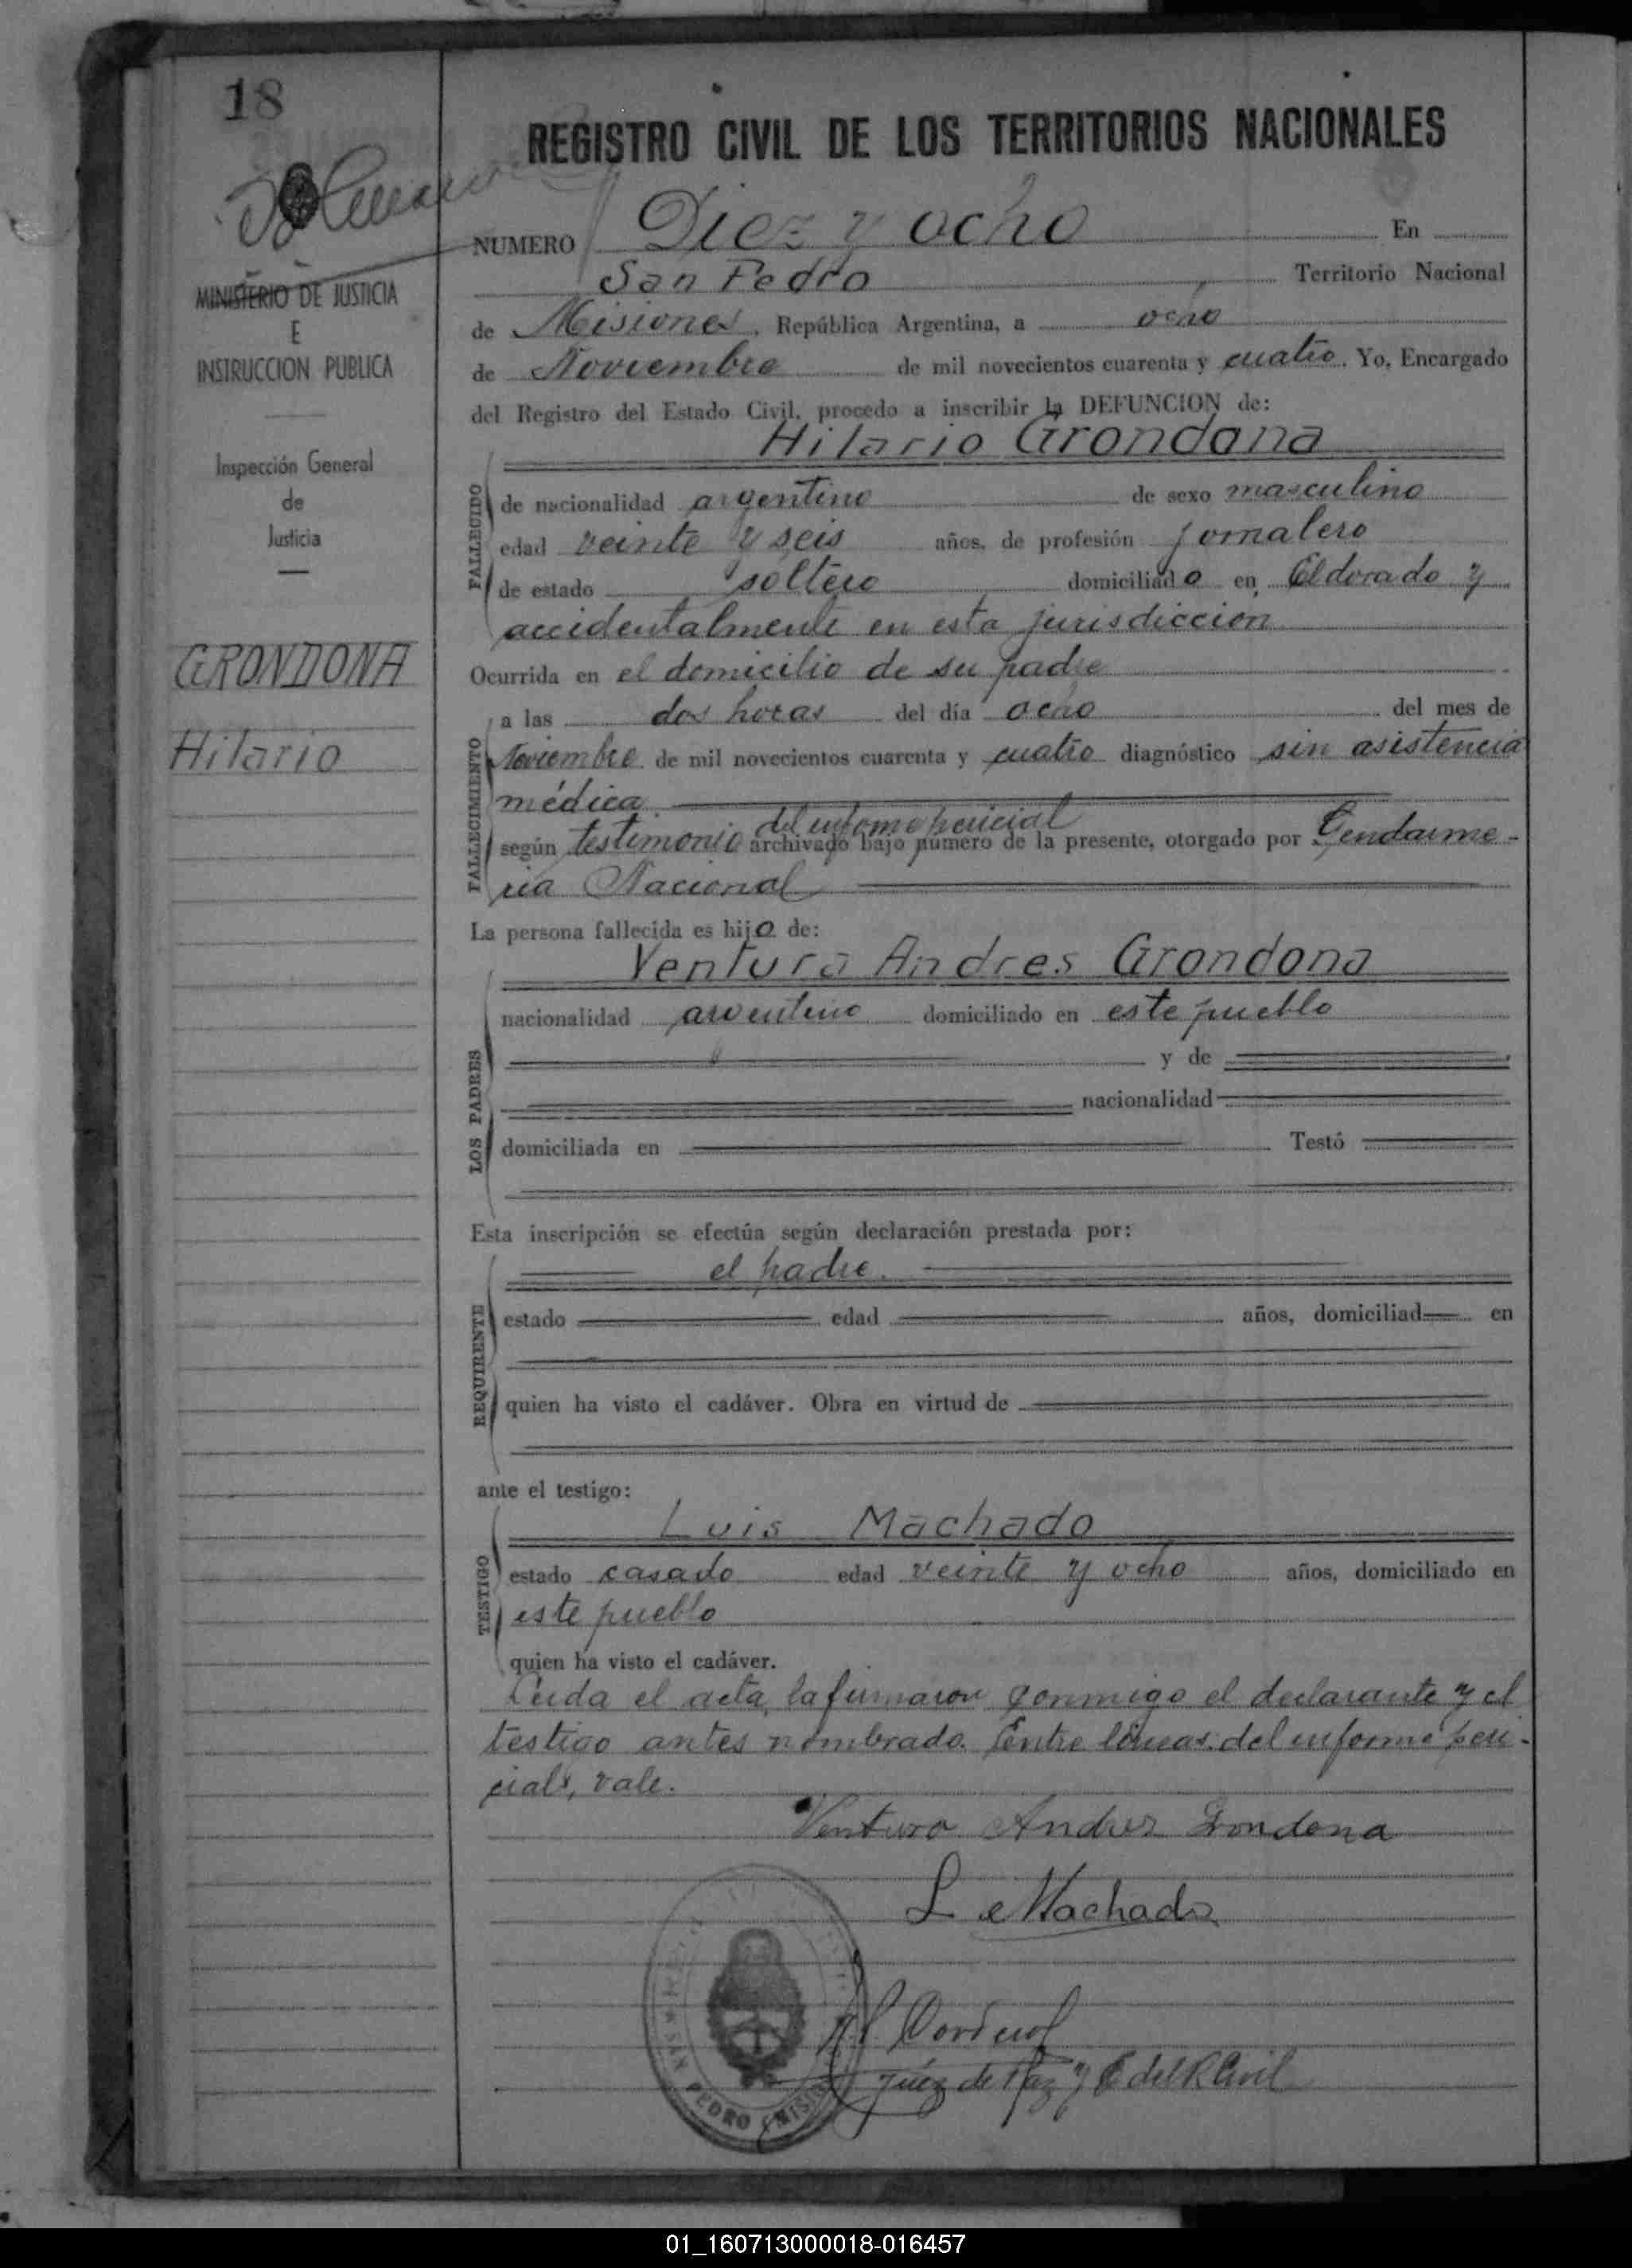 18
REGISTRO CIVIL DE LOS TERRITORIOS NACIONALES
NUMERO Diez y ocho En
San Pedro Territorio Nacional
de Misiones, República Argentina, a ocho
de Noviembre de mil novecientos cuarenta y cuatro. Yo, Encargado
del Registro del Estado Civil, procedo a inscribir la DEFUNCION de:
Hilario Grondona
de nacionalidad argentino de sexo masculino
edad veinte y seis años, de profesión jornalero
de estado soltero domiciliado en Eldorado y
accidentalmente en esta jurisdicción
Ocurrida en el domicilio de su padre
a las dos horas del día ocho del mes de
Noviembre de mil novecientos cuarenta y cuatro diagnóstico sin asistencia
médica
del informe pericial
según testimonio archivado bajo número de la presente, otorgado por Gendarme-
ria Nacional
La persona fallecida es hijo de:
Ventura Andres Grondona
nacionalidad argentino domiciliado en este pueblo
y de
nacionalidad
domiciliada en Testó
Esta inscripción se efectúa según declaración prestada por:
el padre.
estado edad años, domiciliad en
quien ha visto el cadáver. Obra en virtud de
ante el testigo:
Luis Machado
estado casado edad veinte y ocho años, domiciliado en
este pueblo
quien ha visto el cadáver.
Leida el acta, la firmaron conmigo el declarante y el
testigo antes nombrado. Entre líneas: del informe peri-
cial, vale.
Ventura Andres Grondona
L Machado
Juez de Paz y E del R Civil
FALLECIDO
FALLECIMIENTO
LOS PADRES
REQUIRENTE
TESTIGO
MINISTERIO DE JUSTICIA
E
INSTRUCCION PUBLICA
Inspección General
de
Justicia
GRONDONA
Hilario
SAN PEDRO
01_160713000018-016457